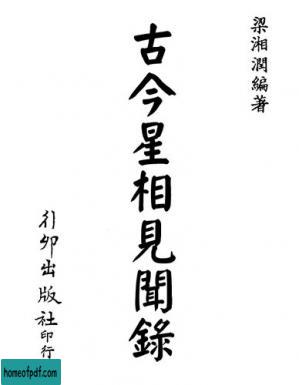 梁湘潤編著
古今星相見聞錄
行卯出版社印行
homeofpdf.com